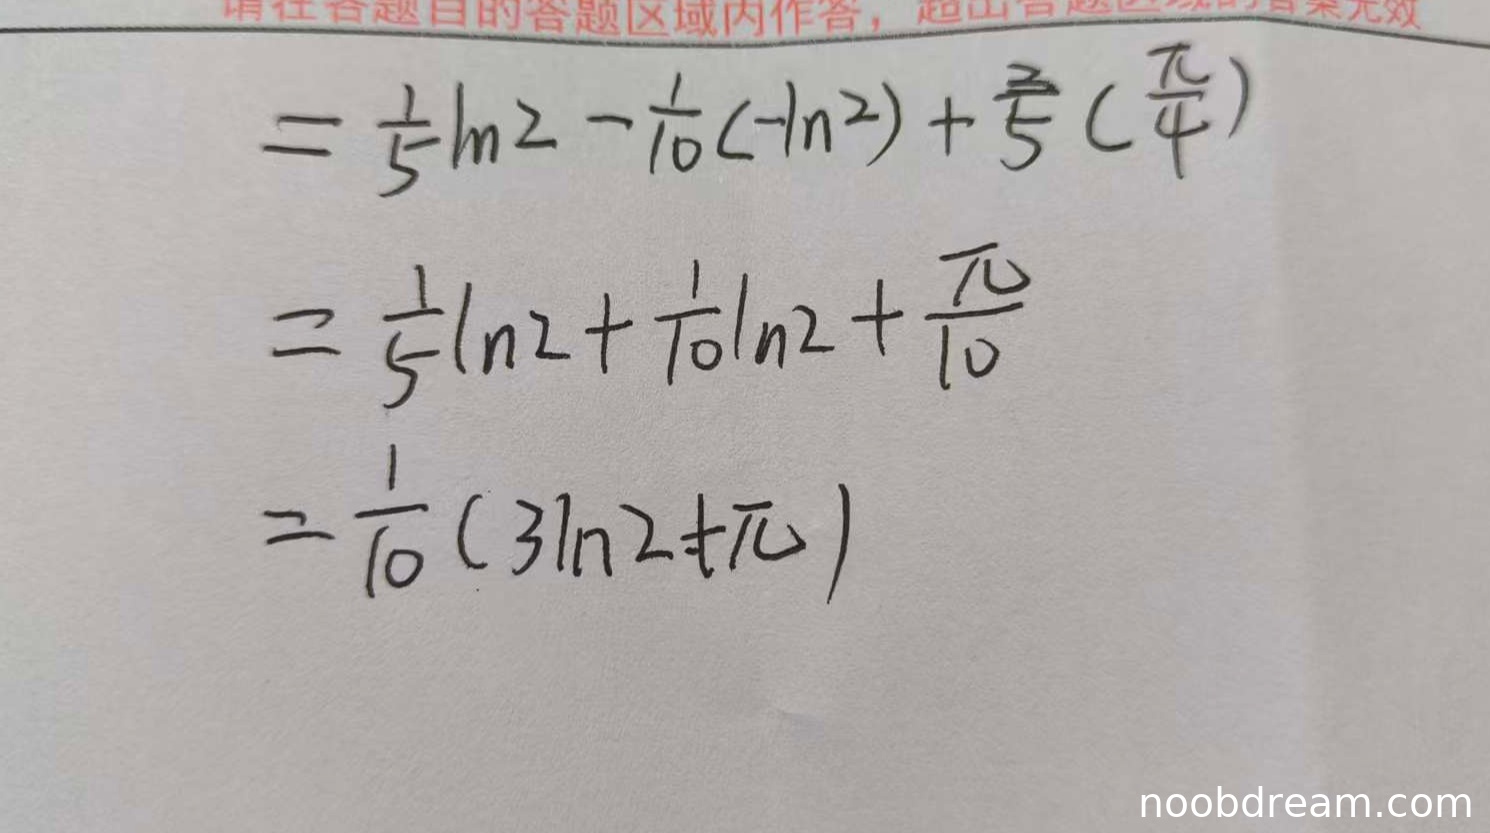 请在各题目的答题区域内作答，超出答题区域的答案无效
= 1/5 ln2 - 1/10 (-ln2) + 2/5 (π/4)
= 1/5 ln2 + 1/10 ln2 + π/10
= 1/10 (3ln2 + π)
noobdream.com